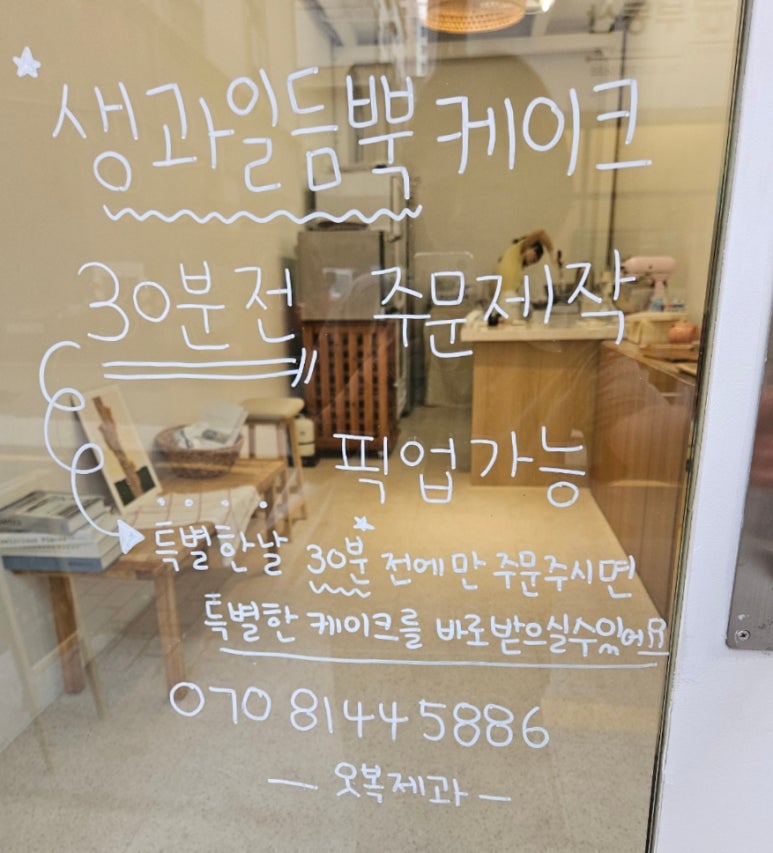 생과일듬뿍케이크
30분전 주문제작
픽업가능
특별한날 30분 전에만 주문주시면
특별한 케이크를 바로받으실수있어요
070 8144 5886
— 옷복제과 —